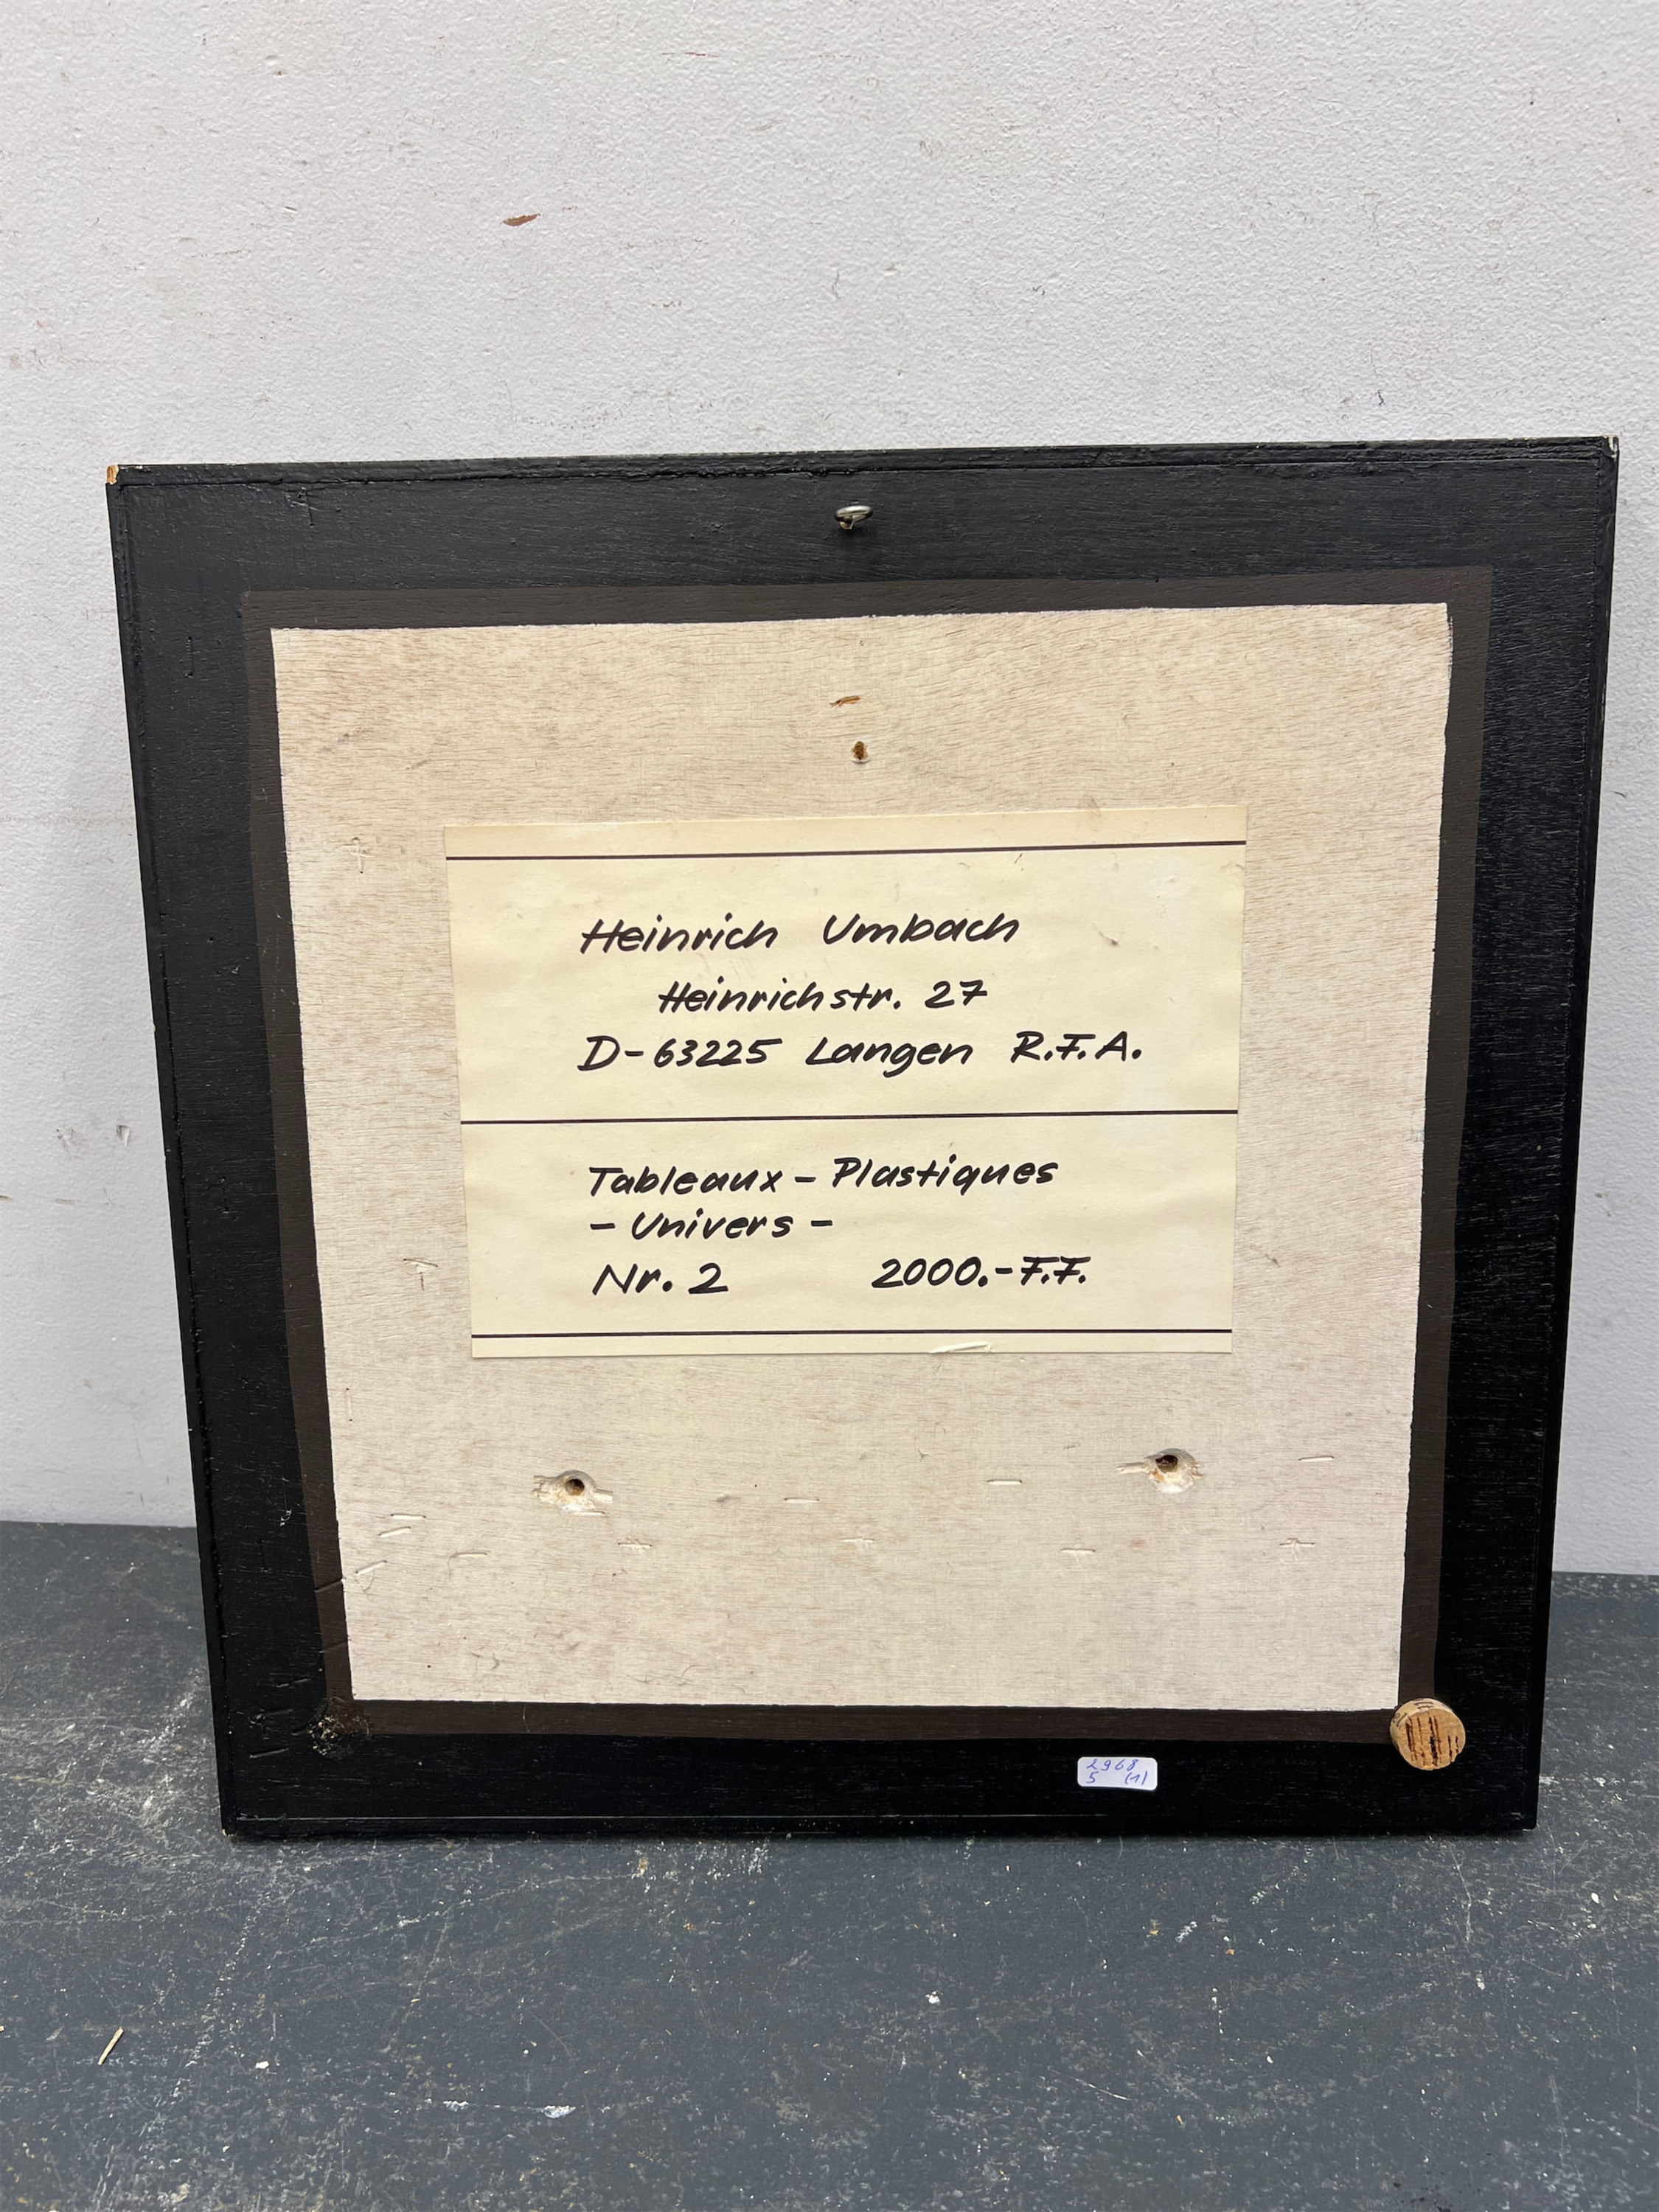 Heinrich Umbach
Heinrichstr. 27
D-63225 Langen R.F.A.
Tableaux - Plastiques
- Univers -
Nr. 2 2000.- F.F.
2968
5 (1)